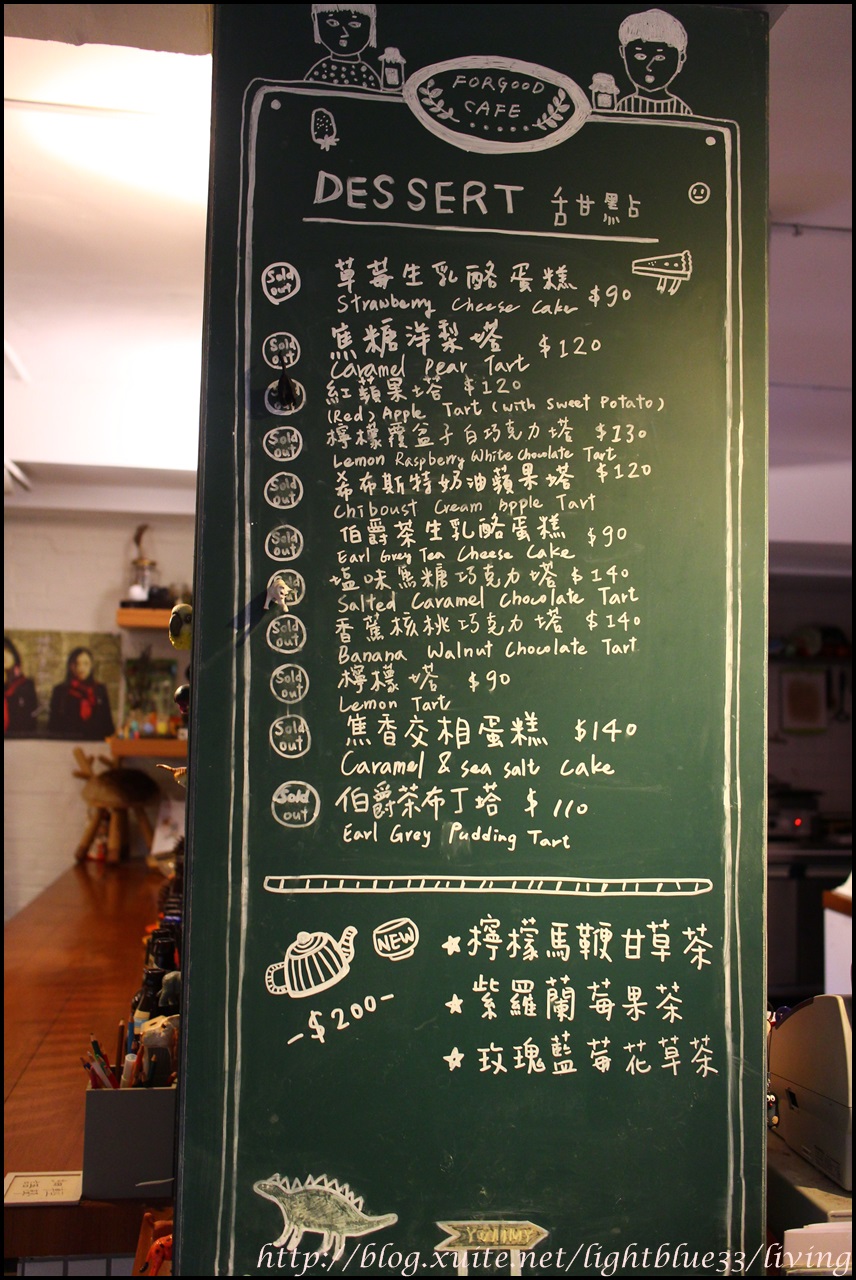 FORGOOD
CAFE
DESSERT 甜點
Sold out 草莓生乳酪蛋糕 $90
Strawberry Cheese Cake
Sold out 焦糖洋梨塔 $120
Caramel Pear Tart
Sold out 紅蘋果塔 $120
(Red) Apple Tart (with Sweet Potato)
Sold out 檸檬覆盆子白巧克力塔 $130
Lemon Raspberry White Chocolate Tart
Sold out 希布斯特奶油蘋果塔 $120
Chiboust Cream Apple Tart
Sold out 伯爵茶生乳酪蛋糕 $90
Earl Grey Tea Cheese Cake
Sold out 塩味焦糖巧克力塔 $140
Salted Caramel Chocolate Tart
Sold out 香蕉核桃巧克力塔 $140
Banana Walnut Chocolate Tart
Sold out 檸檬塔 $90
Lemon Tart
Sold out 焦香交相蛋糕 $140
Caramel & sea salt cake
Sold out 伯爵茶布丁塔 $110
Earl Grey Pudding Tart
NEW
-$200-
★檸檬馬鞭甘草茶
★紫羅蘭莓果茶
★玫瑰藍莓花草茶
YUMMY
http://blog.xuite.net/lightblue33/living